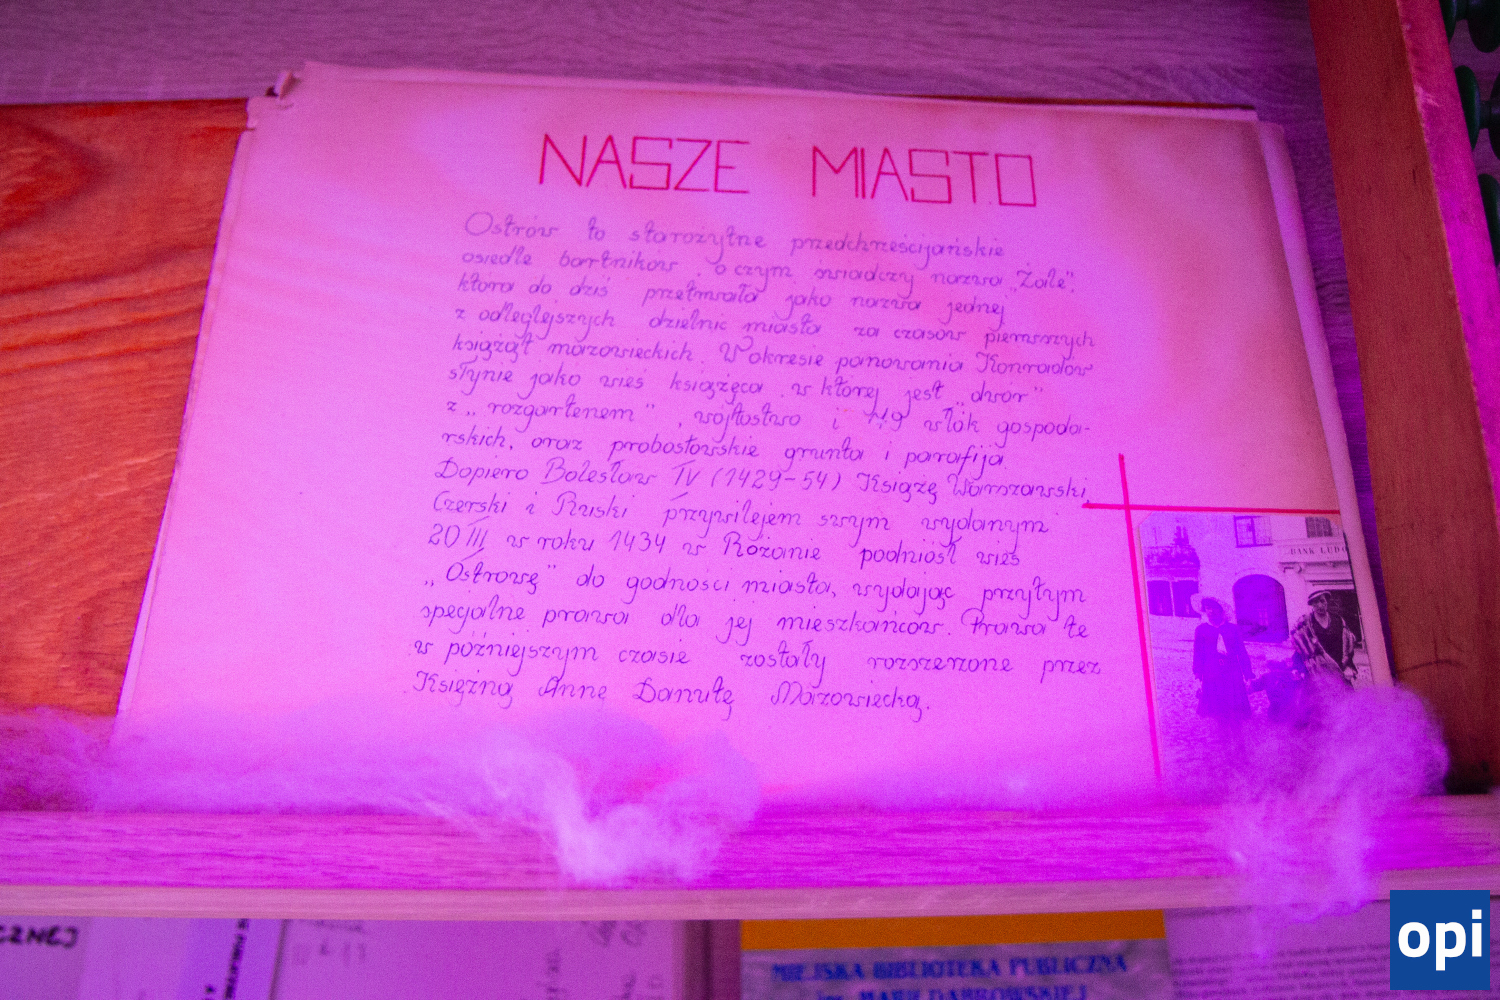 NASZE MIASTO
Ostrów to starożytne przedchrześcijańskie
osiedle bartników, o czym świadczy nazwa „Żale",
która do dziś przetrwała jako nazwa jednej
z odleglejszych dzielnic miasta za czasów pierwszych
książąt mazowieckich. W okresie panowania Konradów
słynie jako wieś książęca w której jest „dwór"
z „rozgartenem", wójtostwo i 49 włók gospoda-
rskich, oraz probostowskie grunta i parafija.
Dopiero Bolesław IV (1429-54) Książę Warszawski,
Czerski i Ruski przywilejem swym wydanym
20 III w roku 1434 w Różanie podniósł wieś
„Ostrowę" do godności miasta, wydając przytym
specjalne prawa dla jej mieszkańców. Prawa te
w późniejszym czasie zostały rozszerzone przez
Księżną Annę Danutę Mazowiecką.
BANK LUDO
CZNEJ
MIEJSKA BIBLIOTEKA PUBLICZNA
im. MARII DĄBROWSKIEJ
opi